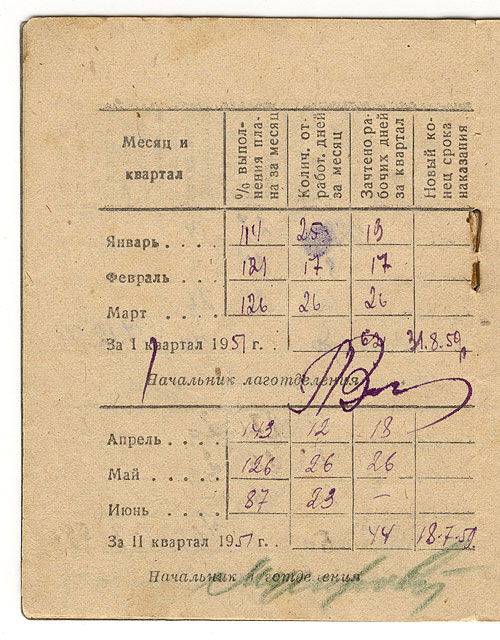 Месяц и квартал
% выпол-
нения пла-
на за месяц
Колич. от-
работ. дней
за месяц
Зачтено ра-
бочих дней
за квартал
Новый ко-
нец срока
наказания
Январь . . . . 114 25 19
Февраль . . . . 121 17 17
Март . . . . 126 26 26
За I квартал 1951 г. . 62 31.8.59
Начальник лаготделения
Апрель . . . . 143 12 18
Май . . . . . 126 26 26
Июнь . . . . 87 23 —
За II квартал 1951 г. . 44 18.7.59
Начальник лаготделения